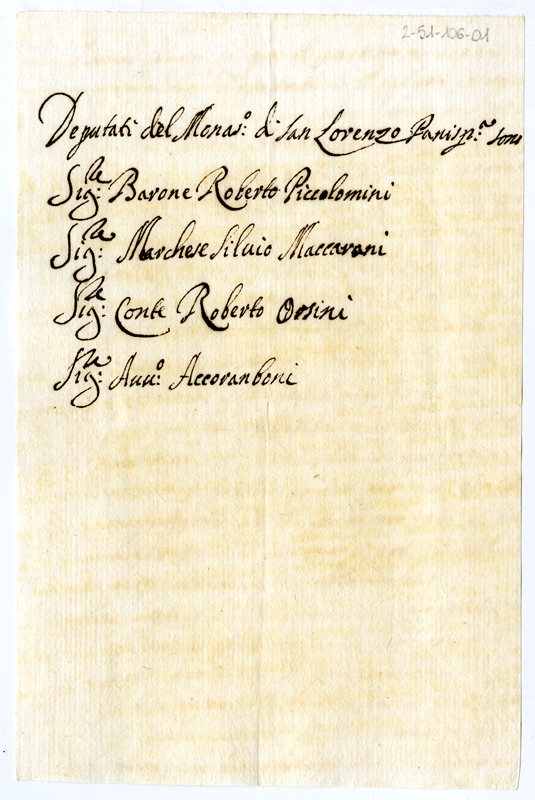 2-51-106-01
Deputati del Monas.o di San Lorenzo Panisp.a sono
Sig.re Barone Roberto Piccolomini
Sig.re Marchese Siluio Maccarani
Sig.re Conte Roberto Orsini
Sig.re Auu.o Accoranboni